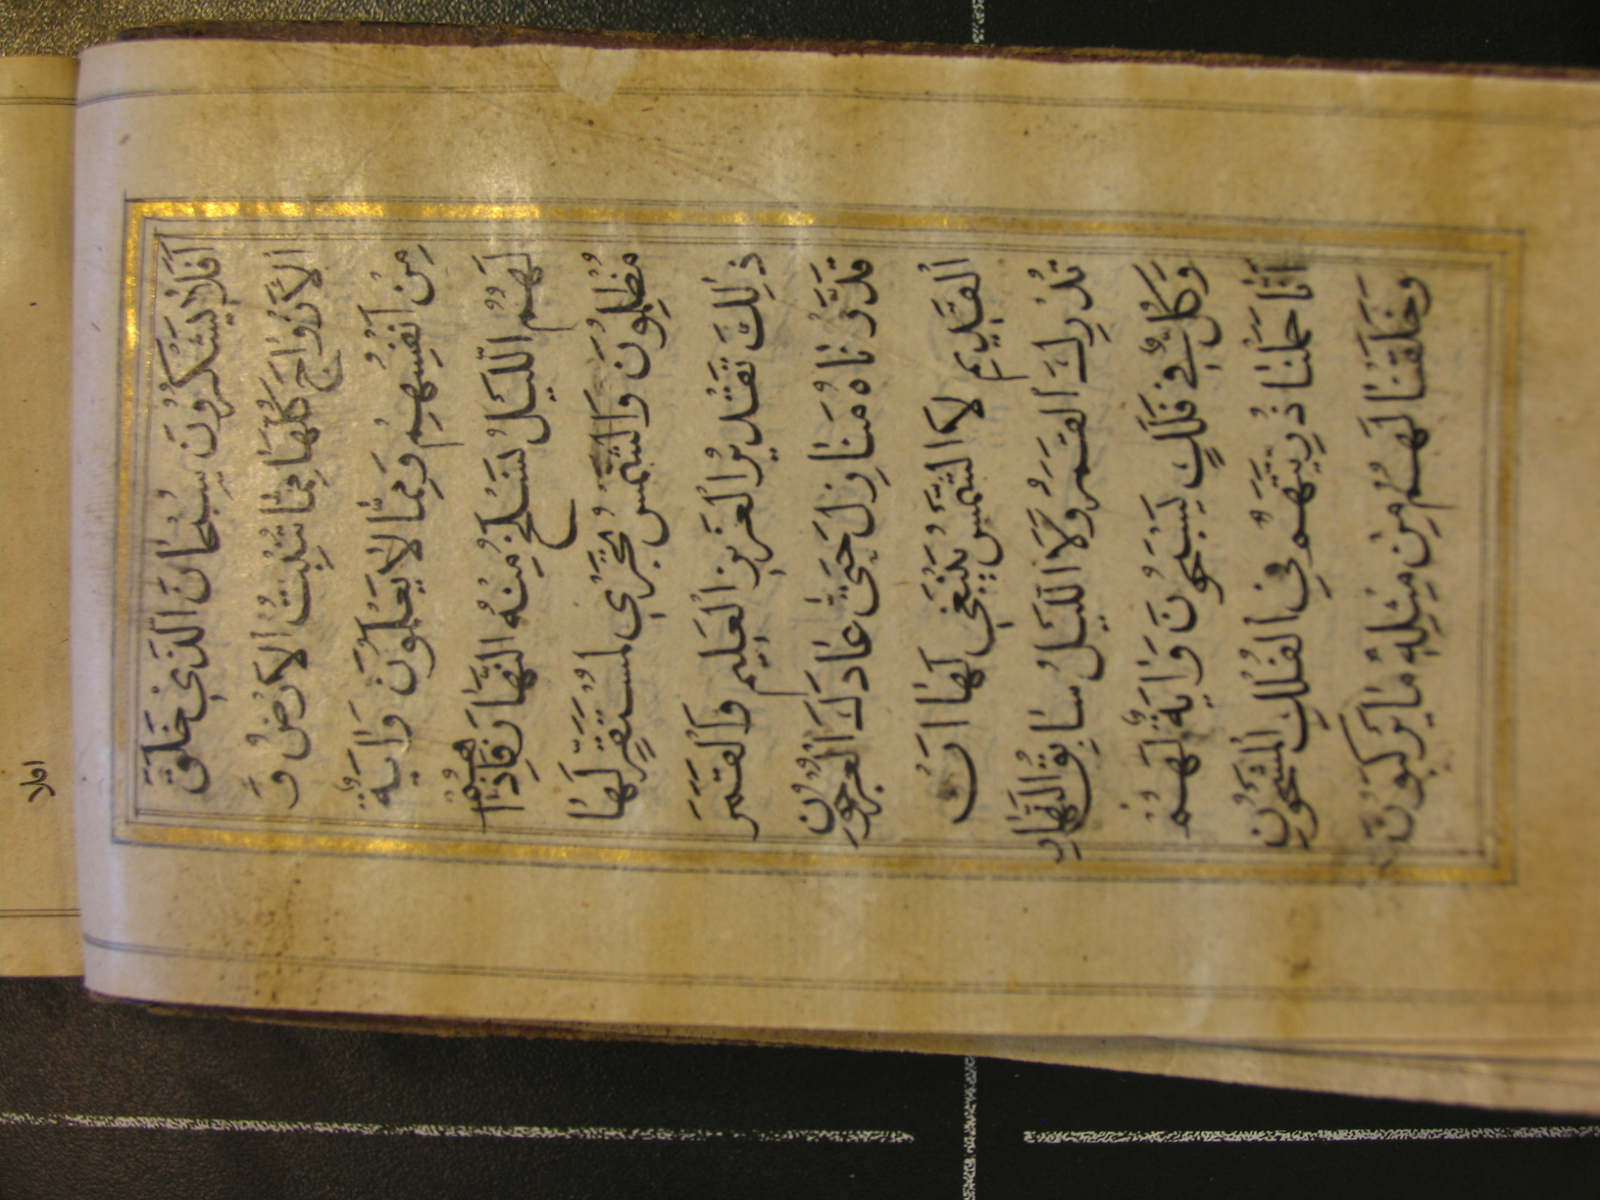 اَفَلَا يَشْكُرُونَ سُبْحَانَ الَّذِي خَلَقَ
الْاَزْوَاجَ كُلَّهَا مِمَّا تُنْبِتُ الْاَرْضُ وَ
مِنْ اَنْفُسِهِمْ وَمِمَّا لَا يَعْلَمُونَ وَاٰيَةٌ
لَهُمُ اللَّيْلُ نَسْلَخُ مِنْهُ النَّهَارَ فَاِذَا هُمْ
مُظْلِمُونَ وَالشَّمْسُ تَجْرِي لِمُسْتَقَرٍّ لَهَا
ذٰلِكَ تَقْدِيرُ الْعَزِيزِ الْعَلِيمِ وَالْقَمَرَ
قَدَّرْنَاهُ مَنَازِلَ حَتّٰى عَادَ كَالْعُرْجُونِ
الْقَدِيمِ لَا الشَّمْسُ يَنْبَغِي لَهَا اَنْ
تُدْرِكَ الْقَمَرَ وَلَا اللَّيْلُ سَابِقُ النَّهَارِ
وَكُلٌّ فِي فَلَكٍ يَسْبَحُونَ وَاٰيَةٌ لَهُمْ
اَنَّا حَمَلْنَا ذُرِّيَّتَهُمْ فِي الْفُلْكِ الْمَشْحُونِ
وَخَلَقْنَا لَهُمْ مِنْ مِثْلِهِ مَا يَرْكَبُونَ
افلا